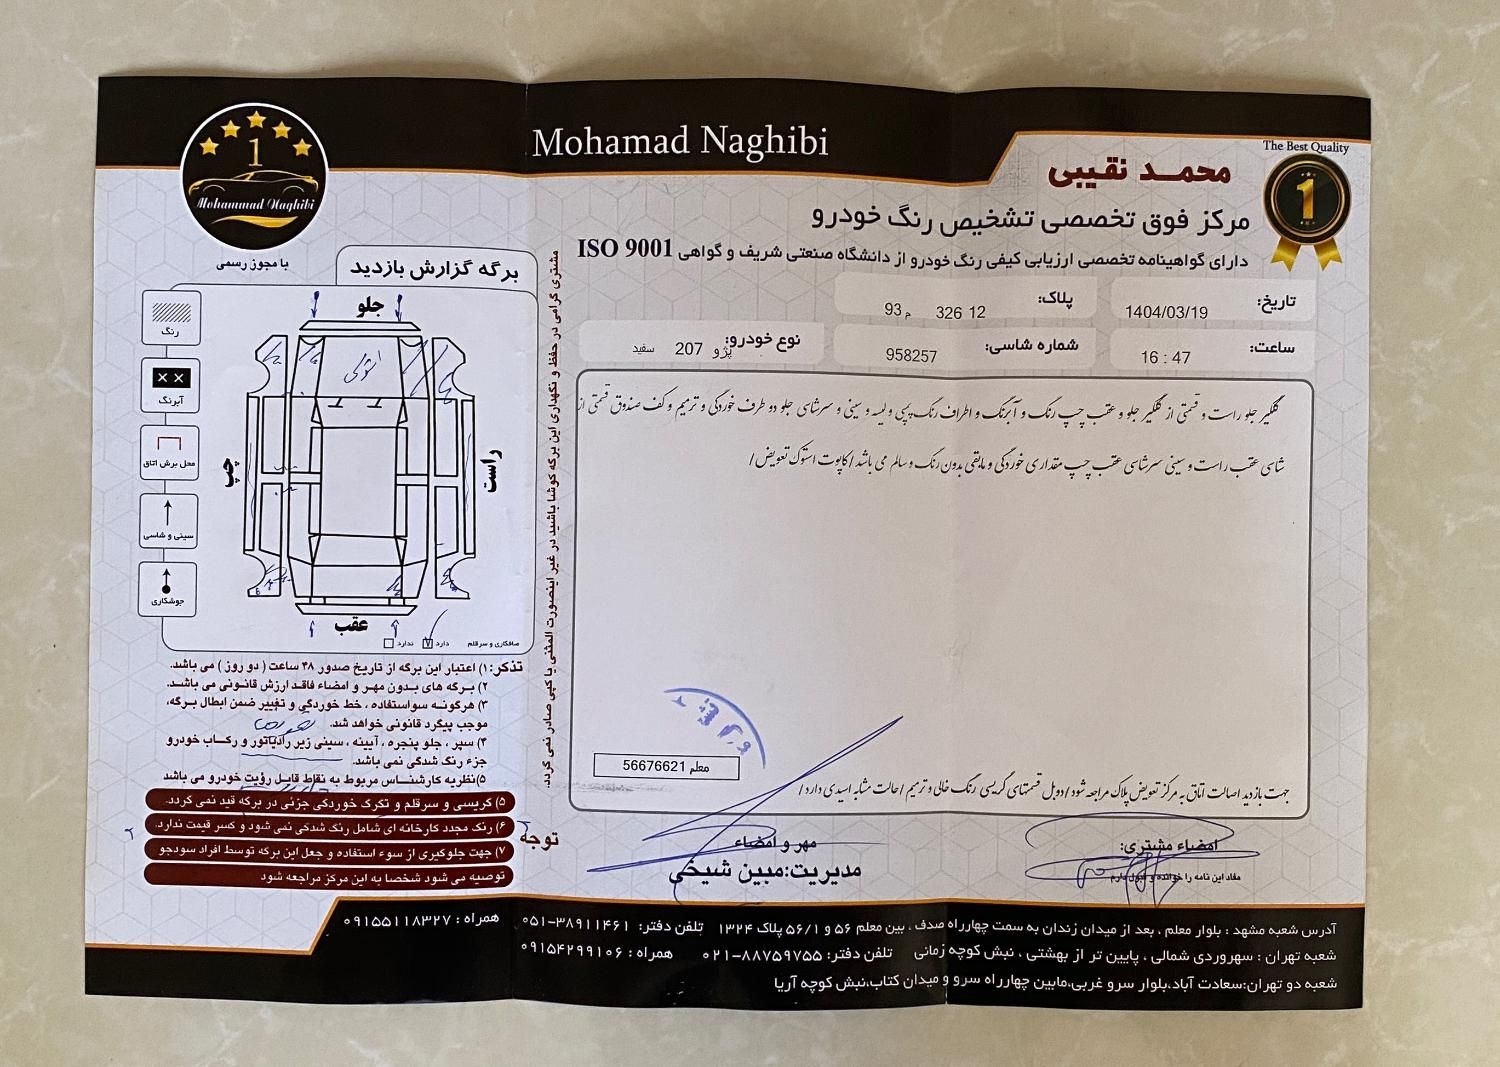 Mohamad Naghibi
1
Mohammad Naghibi
با مجوز رسمی
The Best Quality
1
محمد نقیبی
مرکز فوق تخصصی تشخیص رنگ خودرو
دارای گواهینامه تخصصی ارزیابی کیفی رنگ خودرو از دانشگاه صنعتی شریف و گواهی ISO 9001
تاریخ: 1404/03/19
پلاک: 12 326 م 93
ساعت: 16 : 47
شماره شاسی: 958257
نوع خودرو: پژو 207 سفید
گلگیر جلو راست و قسمتی از گلگیر جلو و عقب چپ رنگ و آبرنگ و اطراف رنگ پیسی و لیسه و سینی و سرشاسی جلو دو طرف خوردگی و ترمیم و کف صندوق قسمتی از
شاسی عقب راست و سینی سرشاسی عقب چپ مقداری خوردگی و مابقی بدون رنگ و سالم می باشد / کاپوت استوک تعویض /
معلم 56676621
جهت بازدید اصالت اتاق به مرکز تعویض پلاک مراجعه شود / دوبل قسمتهای گریسی رنگ خالی و ترمیم / حالت مشابه اسیدی دارد /
مهر و امضاء
مدیریت: مبین شیخی
امضاء مشتری:
مفاد این نامه را خوانده و قبول دارم
مشتری گرامی در حفظ و نگهداری این برگه کوشا باشید در غیر اینصورت المثنی یا کپی صادر نمی گردد.
برگه گزارش بازدید
جلو
چپ
راست
عقب
رنگ
آبرنگ
محل برش اتاق
سینی و شاسی
جوشکاری
صافکاری و سرقلم دارد ندارد
تذکر: ۱) اعتبار این برگه از تاریخ صدور ۴۸ ساعت ( دو روز ) می باشد.
۲) برگه های بدون مهر و امضاء فاقد ارزش قانونی می باشد.
۳) هرگونه سواستفاده ، خط خوردگی و تغییر ضمن ابطال برگه،
موجب پیگرد قانونی خواهد شد.
۴) سپر ، جلو پنجره ، آیینه ، سینی زیر رادیاتور و رکاب خودرو
جزء رنگ شدگی نمی باشد.
۵) نظریه کارشناس مربوط به نقاط قابل رؤیت خودرو می باشد
توجه
۵) گریسی و سرقلم و تکرگ خوردگی جزئی در برگه قید نمی گردد.
۶) رنگ مجدد کارخانه ای شامل رنگ شدگی نمی شود و کسر قیمت ندارد.
۷) جهت جلوگیری از سوء استفاده و جعل این برگه توسط افراد سودجو
توصیه می شود شخصا به این مرکز مراجعه شود
آدرس شعبه مشهد : بلوار معلم ، بعد از میدان زندان به سمت چهارراه صدف ، بین معلم ۵۶ و ۵۶/۱ پلاک ۱۳۲۴ تلفن دفتر: ۰۵۱-۳۸۹۱۱۴۶۱ همراه : ۰۹۱۵۵۱۱۸۳۲۷
شعبه تهران : سهروردی شمالی ، پایین تر از بهشتی ، نبش کوچه زمانی تلفن دفتر: ۰۲۱-۸۸۷۵۹۷۵۵ همراه : ۰۹۱۵۴۲۹۹۱۰۶
شعبه دو تهران:سعادت آباد،بلوار سرو غربی،مابین چهارراه سرو و میدان کتاب،نبش کوچه آریا